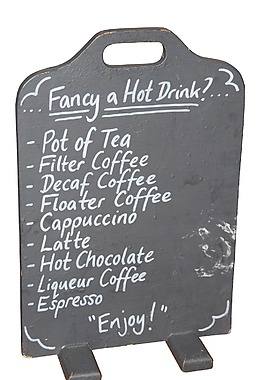 ...Fancy a Hot Drink?...
- Pot of Tea
- Filter Coffee
- Decaf Coffee
- Floater Coffee
- Cappuccino
- Latte
- Hot Chocolate
- Liqueur Coffee
- Espresso
"Enjoy!"